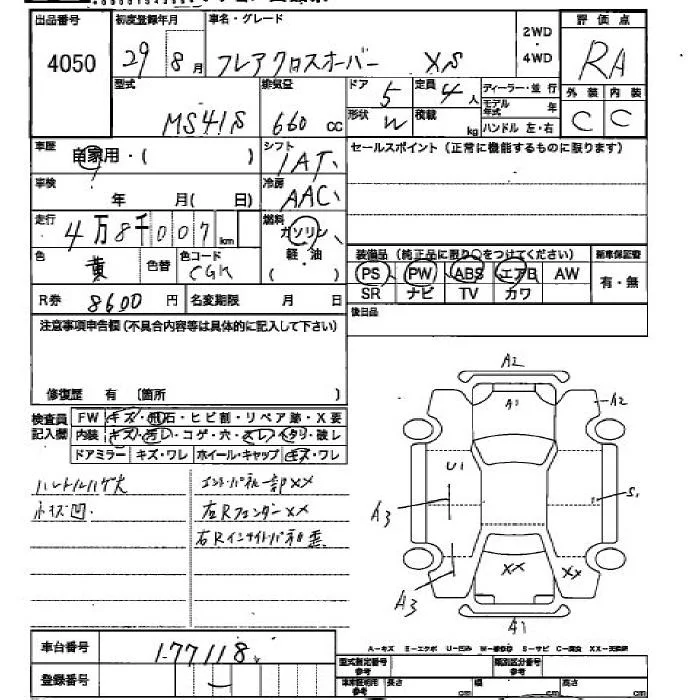 出品番号 初度登録年月 車名・グレード 2WD・4WD 評価点
4050 29年8月 フレアクロスオーバー XS RA
型式 排気量 ドア 定員 ディーラー・並行 外装 内装
MS41S 660cc 5 4人 モデル年式 年 C C
形状 W 積載 kg ハンドル 左・右
車歴 自家用・( ) シフト 1AT セールスポイント(正常に機能するものに限ります)
車検 年 月( 日) 冷房 AAC
走行 4万8千007km 燃料 ガソリン 軽・油 ( )
色 黄 色替 色コード CGK
装備品(純正品に限り○をつけてください) 新車保証書
PS PW ABS エアB AW 有・無
SR ナビ TV カワ
R券 8600円 名変期限 月 日 後日品
注意事項申告欄(不具合内容等は具体的に記入して下さい)
修復歴 有 〔箇所 〕
検査員記入欄 FW キズ・飛石・ヒビ割・リペア跡・X要
内装 キズ・汚レ・コゲ・穴・スレ・ヘタリ・破レ
ドアミラー キズ・ワレ ホイール・キャップ キズ・ワレ
ハンドルハゲ大
XX
ネキズ凹
左RフェンダーXX
右Rインサイドパネ
A2
A1
A2
U1
S1
A3
XX
XX
A3
A1
車台番号 177118
A-キズ E-エクボ U-凹ミ W-補修跡 S-サビ C-腐食 XX-交換済
登録番号
型式指定番号 参考
類別区分番号 参考
車庫証明用 参考 長さ cm 幅 cm 高さ cm